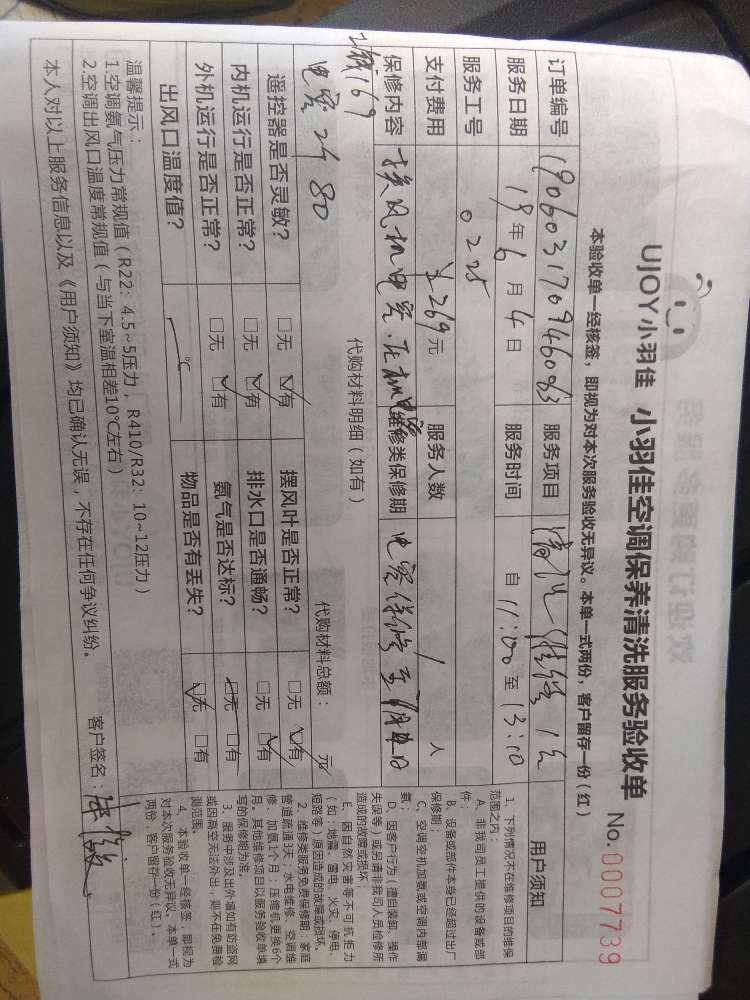 UJOY小羽佳 小羽佳空调保养清洗服务验收单
No. 0007739
本验收单一经核签，即视为对本次服务验收无异议。本单一式两份，客户留存一份(红)
订单编号 1906031709460083 服务项目 清洗 维修 1台
服务日期 19年6月4日 服务时间 自11:00至13:10
服务工号 0225
支付费用 ¥269元 服务人数 1人
保修内容 换风机电容. 维修类保修期 电容保修
代购材料明细（如有）
169
电容 2个 80
代购材料总额： 元
遥控器是否灵敏？ □无 ☑有 摆风叶是否正常？ □无 ☑有
内机运行是否正常？ □无 ☑有 排水口是否通畅？ □无 ☑有
外机运行是否正常？ □无 ☑有 氨气是否达标？ □无 □有
出风口温度值？ ℃ 物品是否有丢失？ ☑无 □有
温馨提示：
1.空调氨气压力常规值（R22：4.5~5压力，R410/R32：10~12压力）
2.空调出风口温度常规值（与当下室温相差10℃左右）
本人对以上服务信息以及《用户须知》均已确认无误，不存在任何争议纠纷。 客户签名：
用户须知
1、下列情况不在维修项目的维保
范围之内：
A、非我司员工提供的设备或部
件；
B、设备或部件本身已经超过出厂
保修期；
C、空调空机加氨或空调内部漏
氨；
D、因客户行为（擅自装卸、操作
失误等）或另请非我司人员检修所
造成的故障或损坏；
E、因自然灾害等不可抗拒力
（如：地震、雷电、火灾、停电、
短路等）原因造成的故障或损坏。
2、维修类服务免费保修期：家庭
管道疏通3天；水电维修、空调维
修、加氨1个月；压缩机更换6个
月。其他维修项目以服务验收单填
写的保修期为准。
3、服务中涉及出外墙如有防盗网
或因高空无法外出，则不在免费检
测范围。
4、本验收单一经核签，即视为
对本次服务验收无异议。本单一式
两份，客户留存一份（红）。